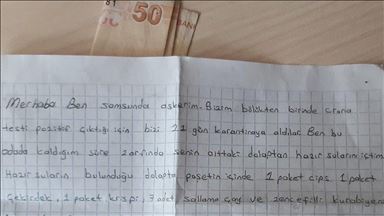 81
50
BANK
Merhaba Ben samsunda askerim. Bizim bölükten birinde crona
testi pozitif çıktığı için bizi 21 gün karantinaya aldılar. Ben bu
odada kaldığım süre zarfında senin alttaki dolaptan hazır suların içtim
Hazır suların bulunduğu dolapta poşetin içinde 1 paket cips 1 paket
çekirdek, 1 paket krispi, 3 adet sallama çay ve zencefilli kurabiyen